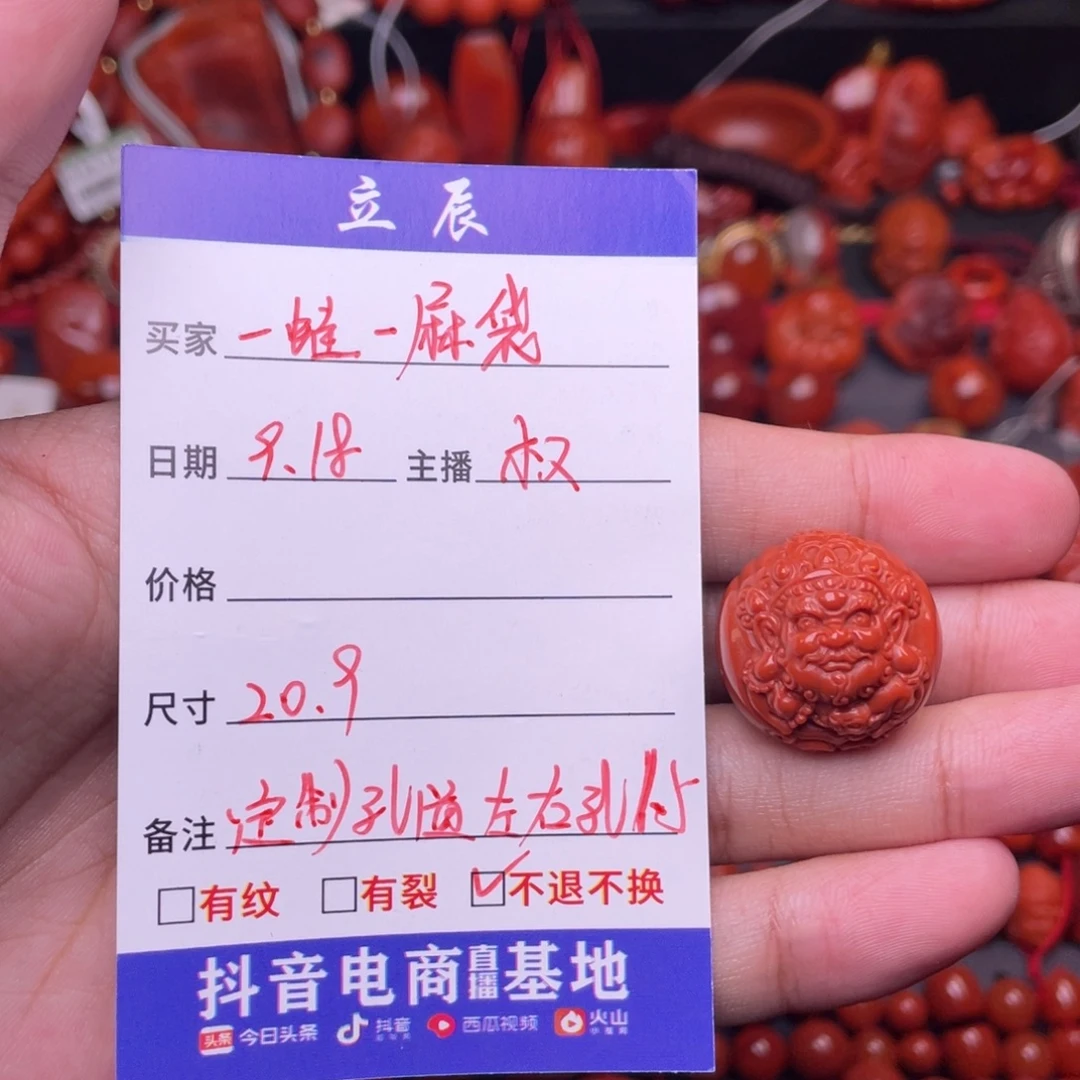 立辰
买家 一蛙一麻袋
日期 9.18 主播 权
价格
尺寸 20.9
备注 定制孔道左右孔
有纹 有裂 不退不换
抖音电商直播基地
头条 今日头条 抖音 西瓜视频 火山